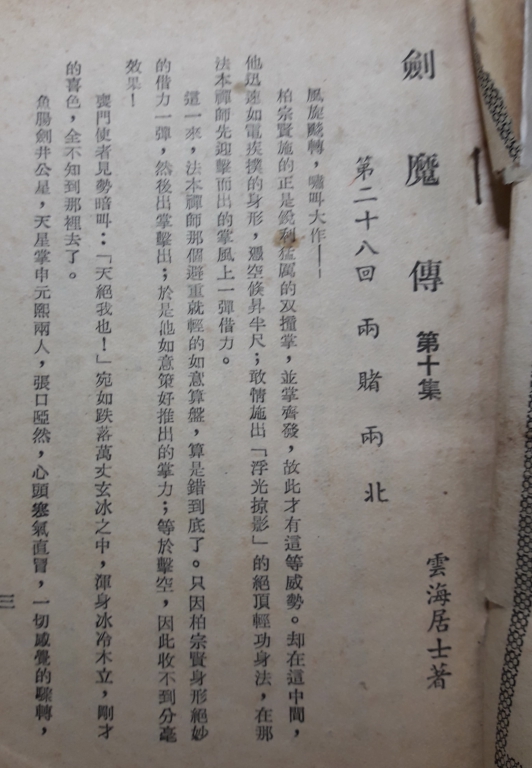 劍魔傳 第十集
雲海居士著
第二十八回 兩賭兩北
風旋颼轉，嘯叫大作——
柏宗賢施的正是銳利猛厲的双撞掌，並掌齊發，故此才有這等威勢。却在這中間，
他迅速如電疾撲的身形，憑空倏昇半尺；敢情施出「浮光掠影」的絕頂輕功身法，在那
法本禪師先迎擊而出的掌風上一彈借力。
這一來，法本禪師那個避重就輕的如意算盤，算是錯到底了。只因柏宗賢身形絕妙
的借力一彈，然後出掌擊出；於是他如意策好推出的掌力；等於擊空，因此收不到分毫
效果！
喪門使者見勢暗叫：「天絕我也！」宛如跌落萬丈玄冰之中，渾身冰冷木立，剛才
的喜色，全不知到那裡去了。
魚腸劍井公星，天星掌申元熙兩人，張口啞然，心頭寒氣直冒，一切感覺的驟轉，
三